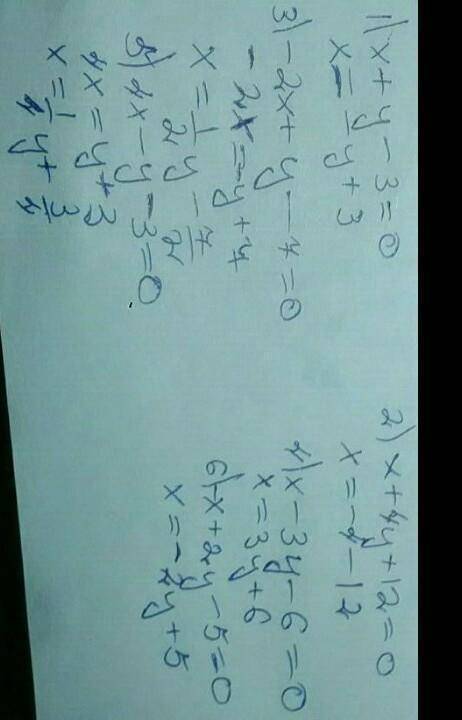 1) x + y - 3 = 0
x = -y + 3
3) -2x + y - 4 = 0
-2x = -y + 4
x = 1/2 y - 4/2
5) 4x - y - 3 = 0
4x = y + 3
x = 1/4 y + 3/4
2) x + 4y + 12 = 0
x = -4 - 12
4) x - 3y - 6 = 0
x = 3y + 6
6) -x + 2y - 5 = 0
x = -2y + 5